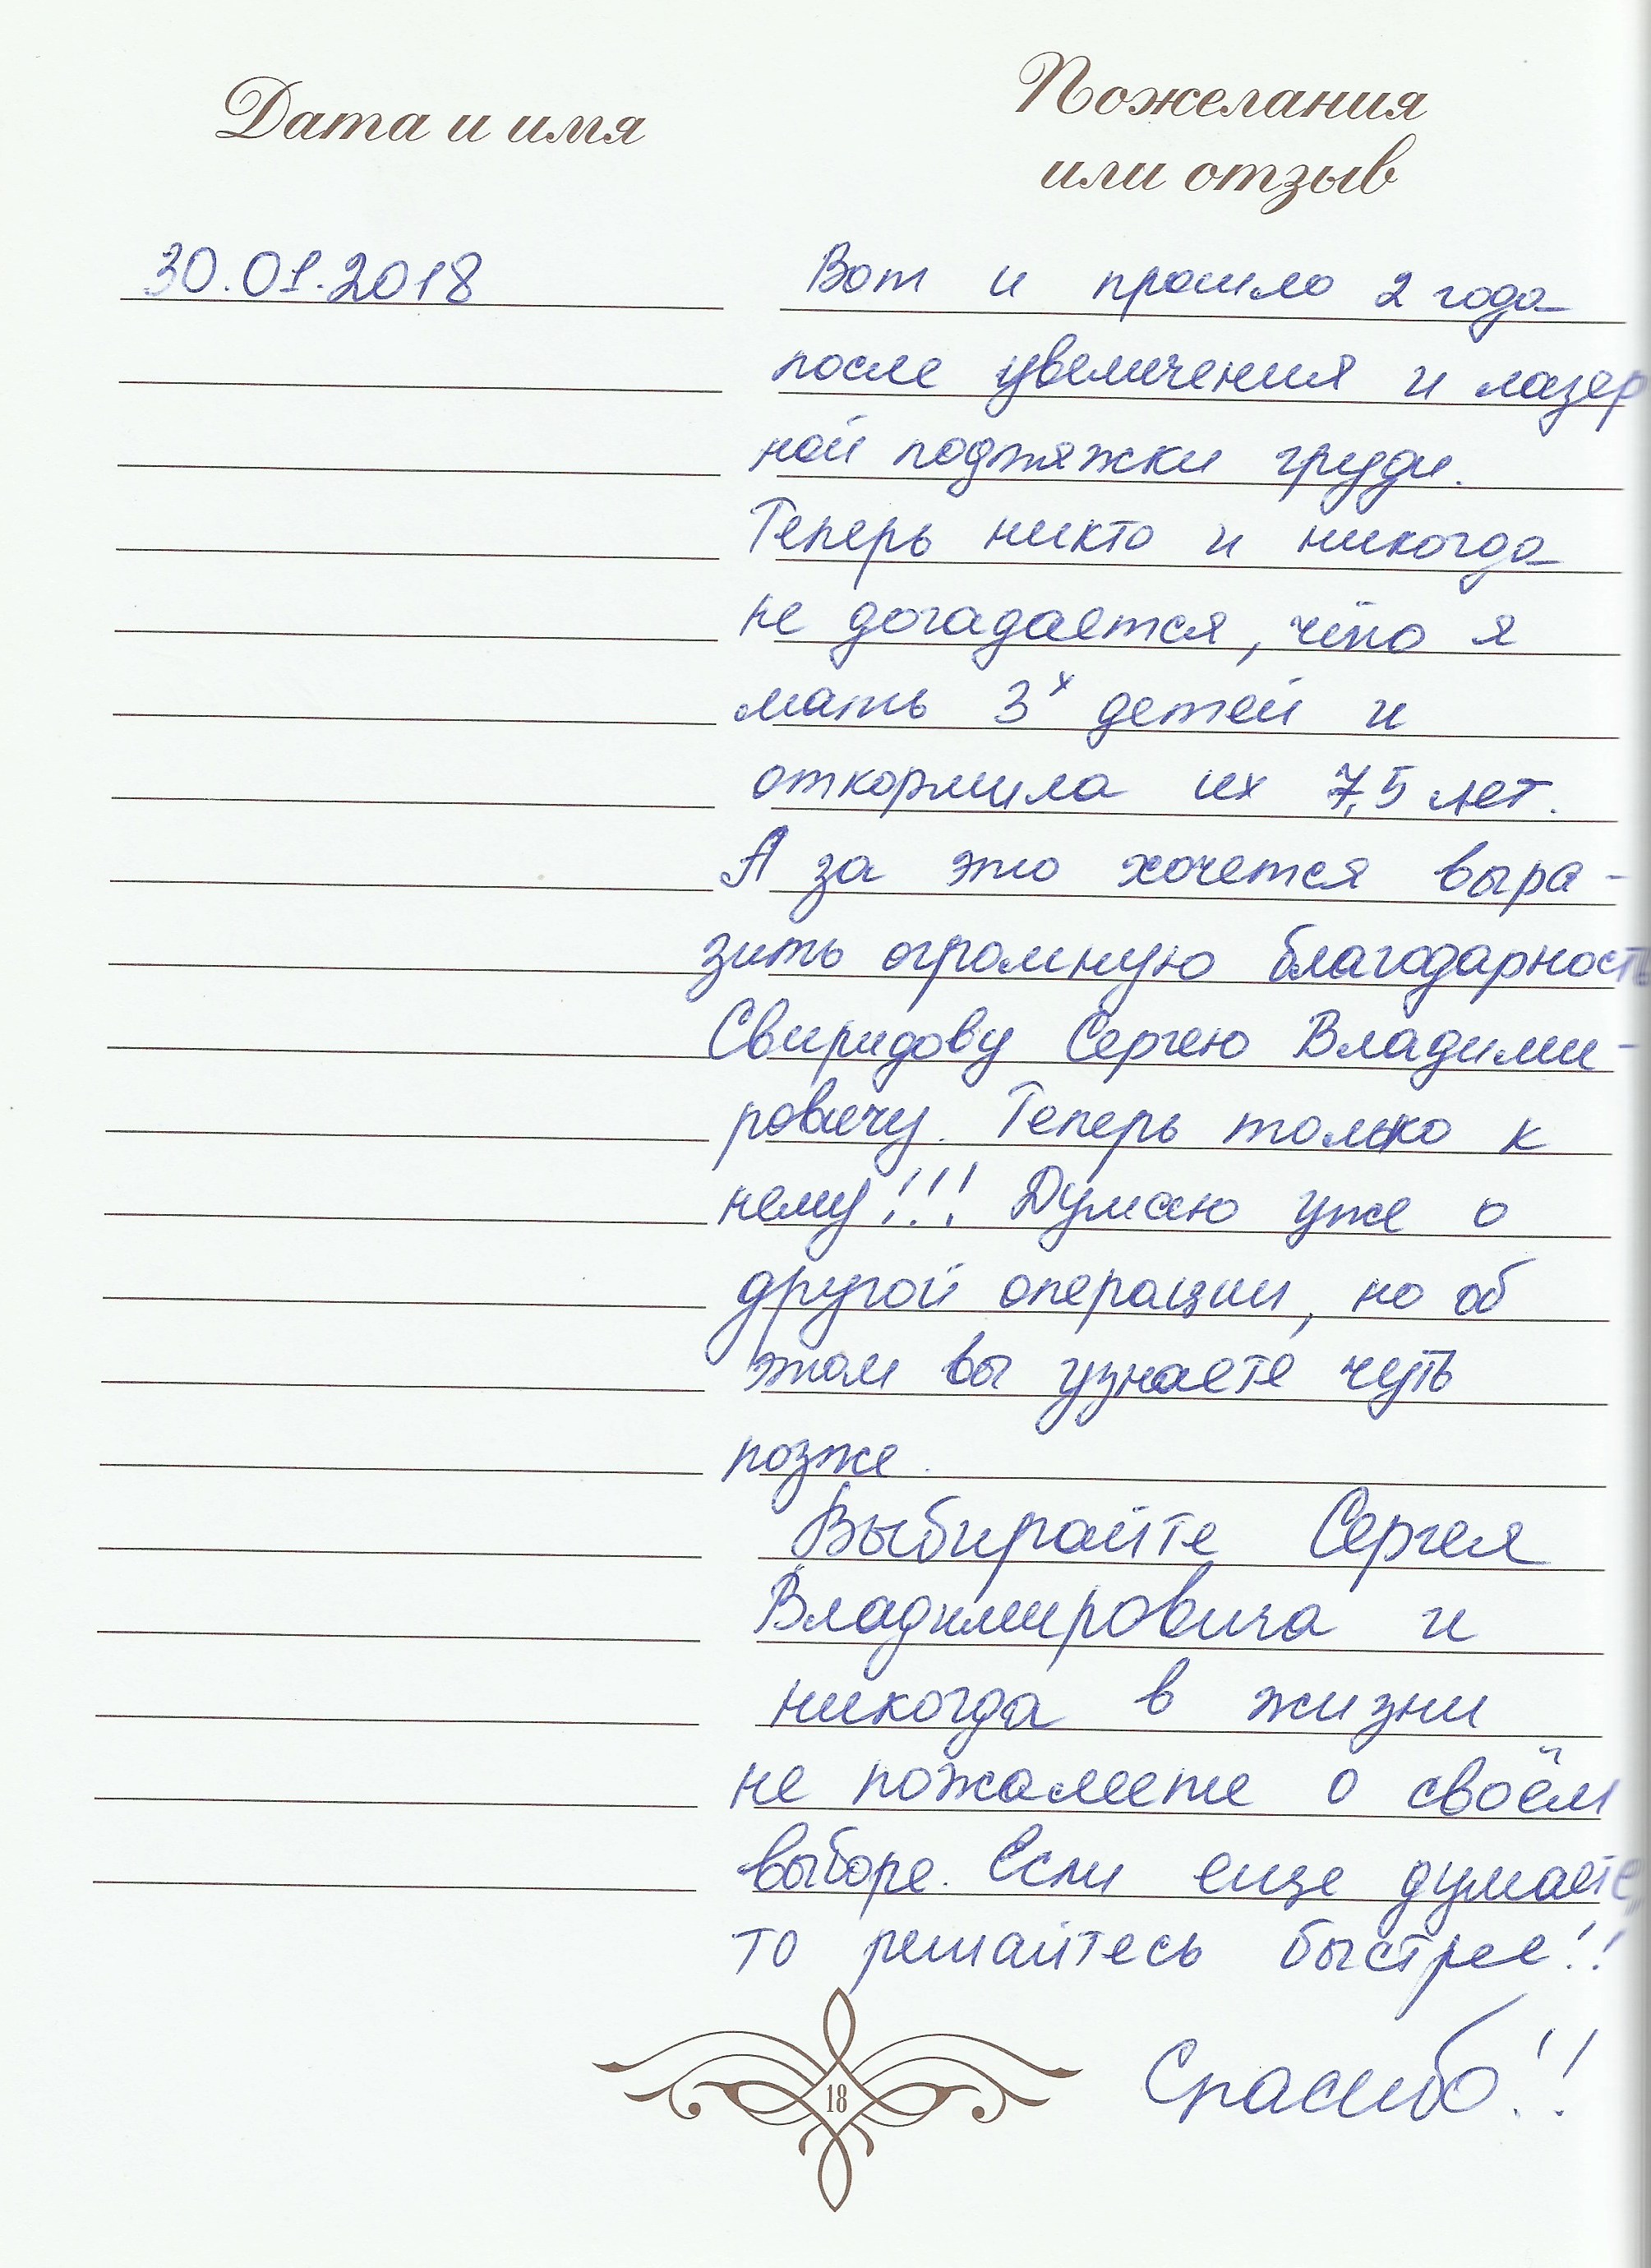 Дата и имя
Пожелания
или отзыв
30.01.2018
Вот и прошло 2 года
после увеличения и лазер
ной подтяжки груди.
Теперь никто и никогда
не догадается, что я
мать 3х детей и
откормила их 7,5 лет.
А за это хочется выра-
зить огромную благодарность
Свиридову Сергею Владими-
ровичу. Теперь только к
нему!!! Думаю уже о
другой операции, но об
этом вы узнаете чуть
позже.
Выбирайте Сергея
Владимировича и
никогда в жизни
не пожалеете о своём
выборе. Если еще думаете,
то решайтесь быстрее!!
Спасибо!!
18